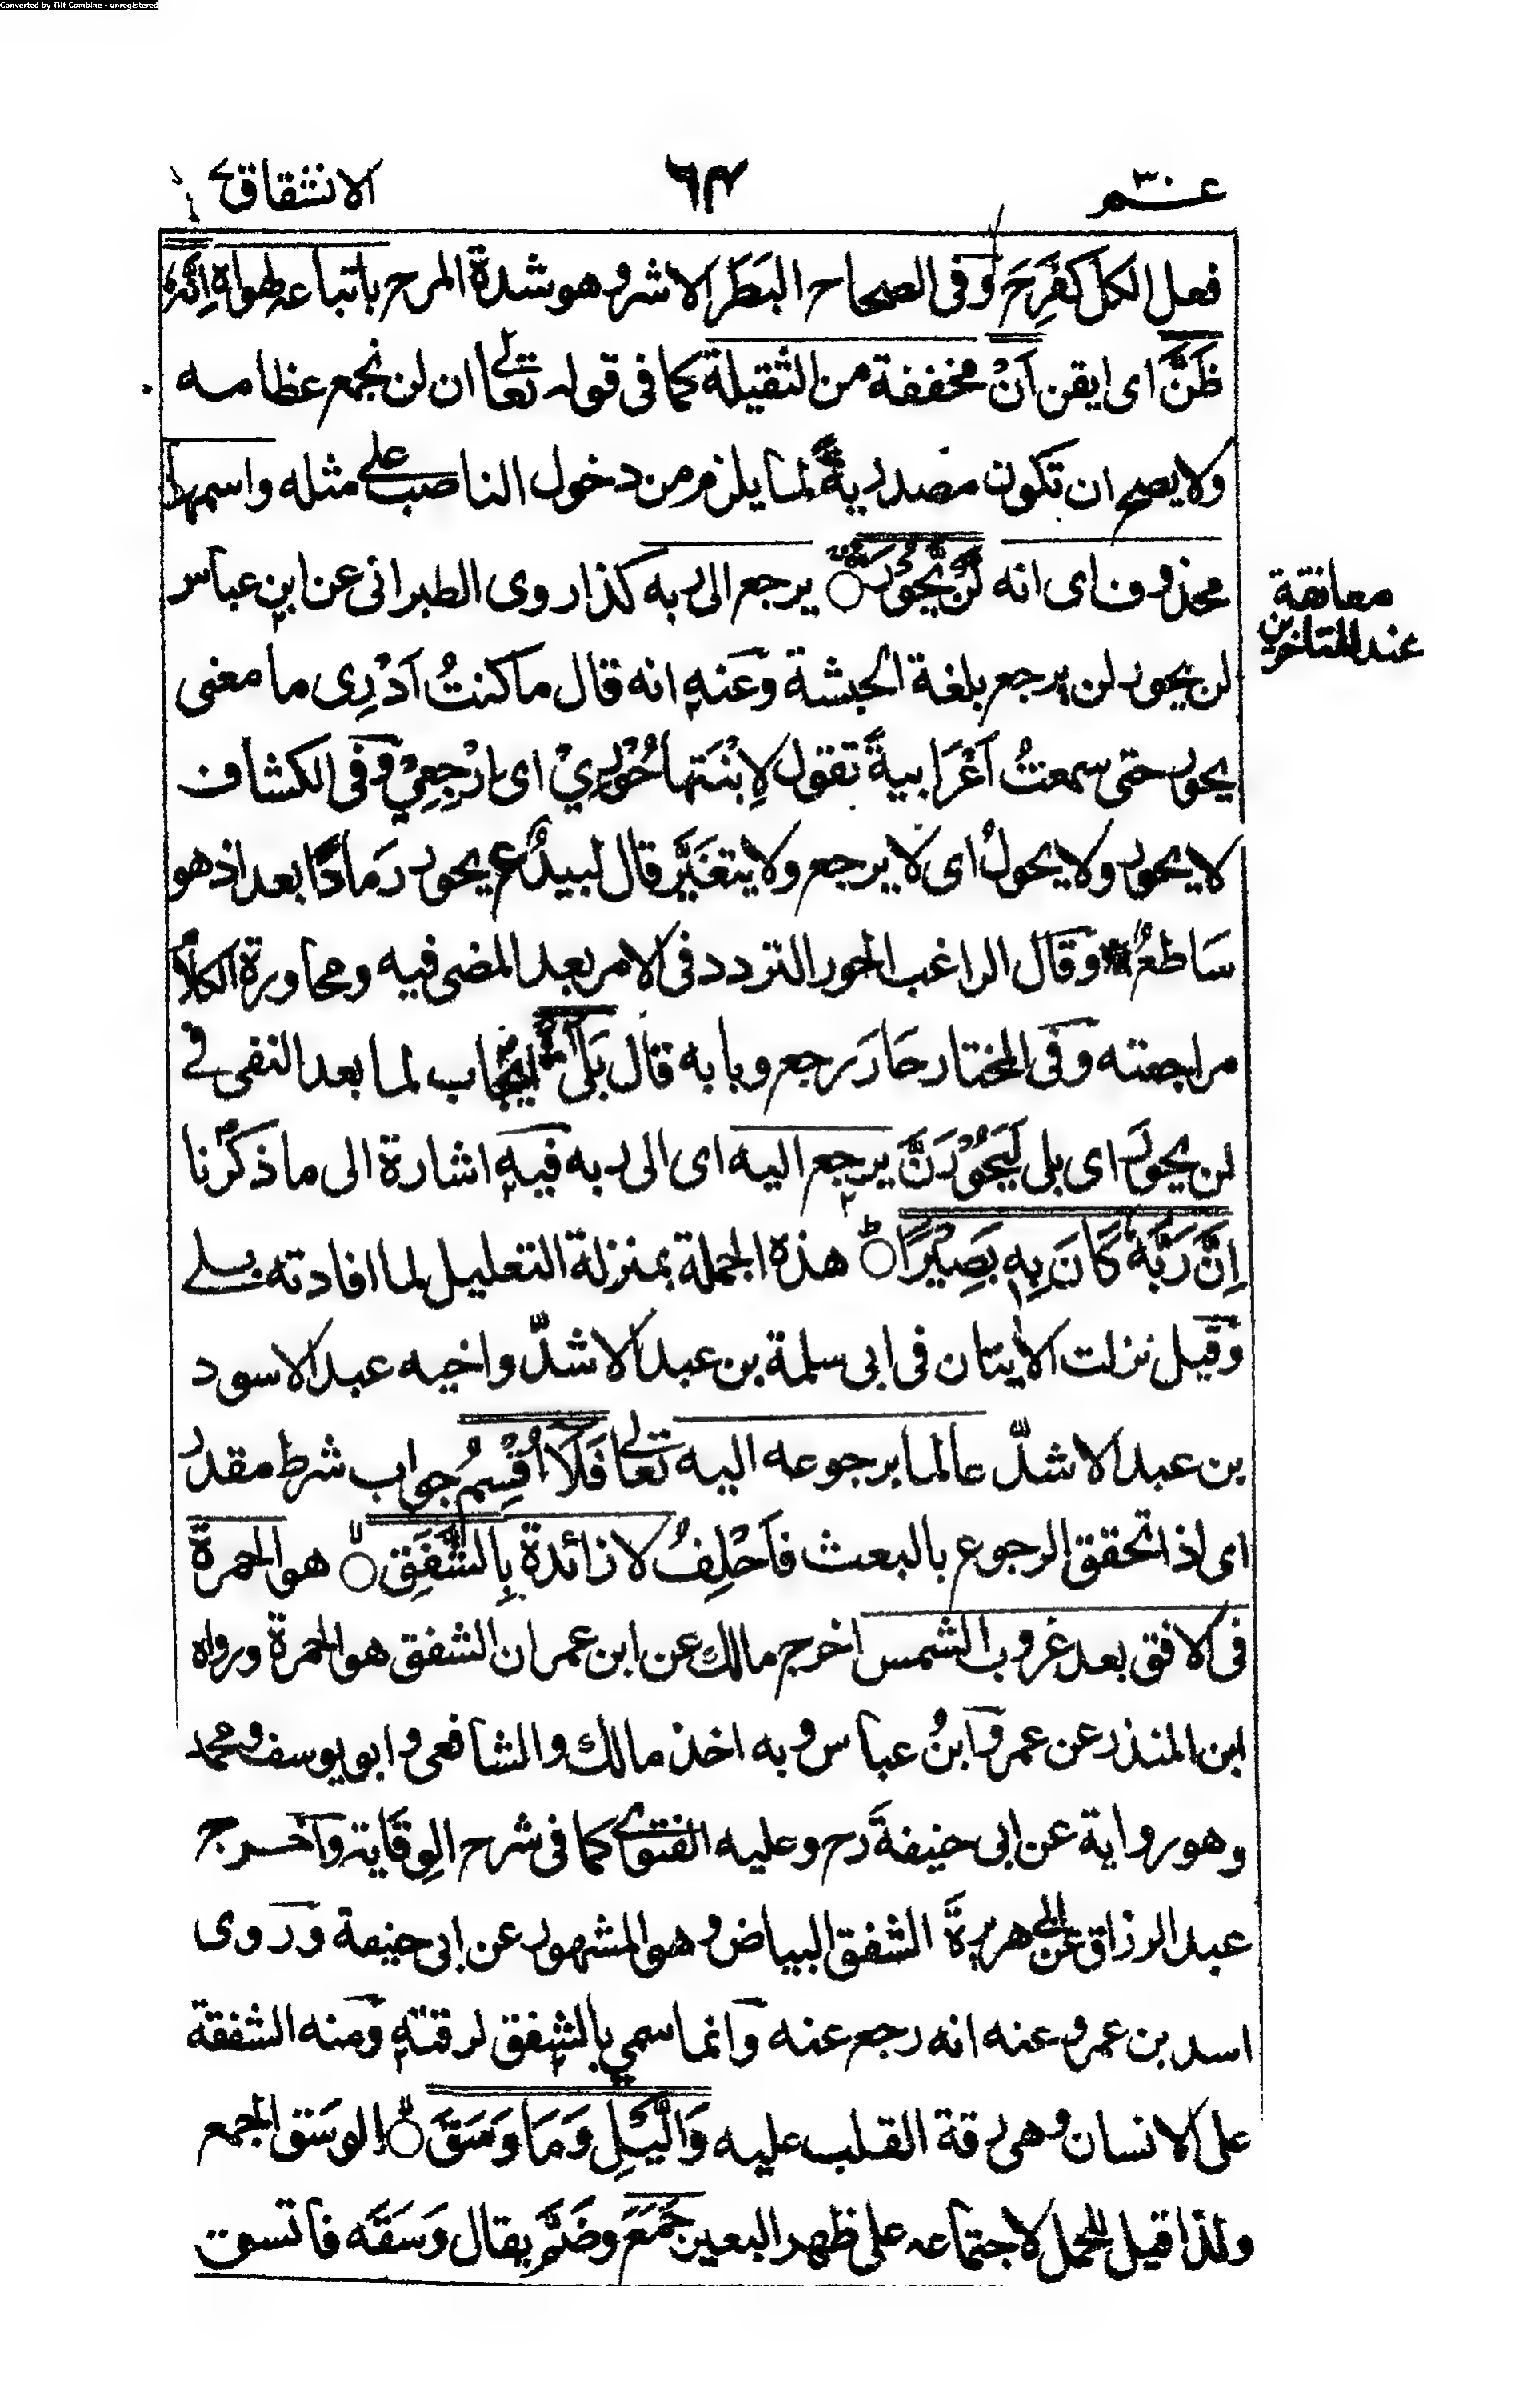 Converted by Tiff Combine - unregistered
عـم ٣٠
٦٤
الانشقاق
فعل الكل كَفَرِحَ وفى الصحاح البَطَر الاشر وهو شدة المرح باتباعه لهواه اِنَّهٗ
ظَنَّ اى ايقن اَنْ مخففة من الثقيلة كما فى قوله تعالى ان لن نجمع عظامه
ولا يصح ان تكون مصدرية لما يلزم من دخول الناصب على مثله واسمها
محذوف اى انه لَّنْ يَّحُوْرَ يرجع الى ربه كذا روى الطبرانى عن ابن عباس
معانقة
عند المتاخرين
لن يحور لن يرجع بلغة الحبشة وعنه انه قال ما كنتُ اَدْرِى ما معنى
يحور حتى سمعتُ اَعْرَابيةً تقول لِابْنَتها حُوْرِيْ اى ارْجِعِيْ وفى الكشاف
لا يحور ولا يحولُ اى لا يرجع ولا يتغَيَّر قال لبيدٌ ع يحور رَمادًا بعد اذ هو
سَاطعُ وقال الراغب الحور التردد فى الامر بعد المضى فيه ومحاورة الكلام
مراجعته وفى المختار حَارَ رجع وبابه قال بَلٰى ايجاب لما بعد النفى فى
لن يحورَ اى بلى لَيَحُوْرَنَّ يرجع اليه اى الى ربه فيه اشارة الى ما ذكرنا
اِنَّ رَبَّهٗ كَانَ بِهٖ بَصِيْرًا ط هذه الجملة بمنزلة التعليل لما افادته بلى
وقيل نزلت الايتان فى ابى سلمة بن عبد الاشدّ واخيه عبد الاسود
بن عبد الاشدّ عالما برجوعه اليه تعالى فَلَاۤ اُقْسِمُ جواب شرط مقدر
اى اذا تحقق الرجوع بالبعث فاَحْلِفُ لا زائدة بِالشَّفَقِ هو الحمرة
فى الافق بعد غروب الشمس اخرج مالك عن ابن عمر ان الشفق هو الحمرة ورواه
ابن المنذر عن عمر وابنُ عباس وبه اخذ مالك والشافعى وابو يوسف ومحمد
وهو رواية عن ابى حنيفةَ رح وعليه الفتوى كما فى شرح الوِقَاية واخرج
عبد الرزاق عن ابى هريرةَ الشفق البياض وهو المشهور عن ابى حنيفة وروى
اسد بن عمرو عنه انه رجع عنه وانما سمي بالشفق لرقته ومنه الشفقة
على الانسان وهى رقة القلب عليه وَالَّيْلِ وَمَا وَسَقَ الوسَق الجمع
ولذا قيل للحمل لاجتماعه على ظهر البعير جَمَعَ وضَمَّ يقال وَسَقَه فاتسق